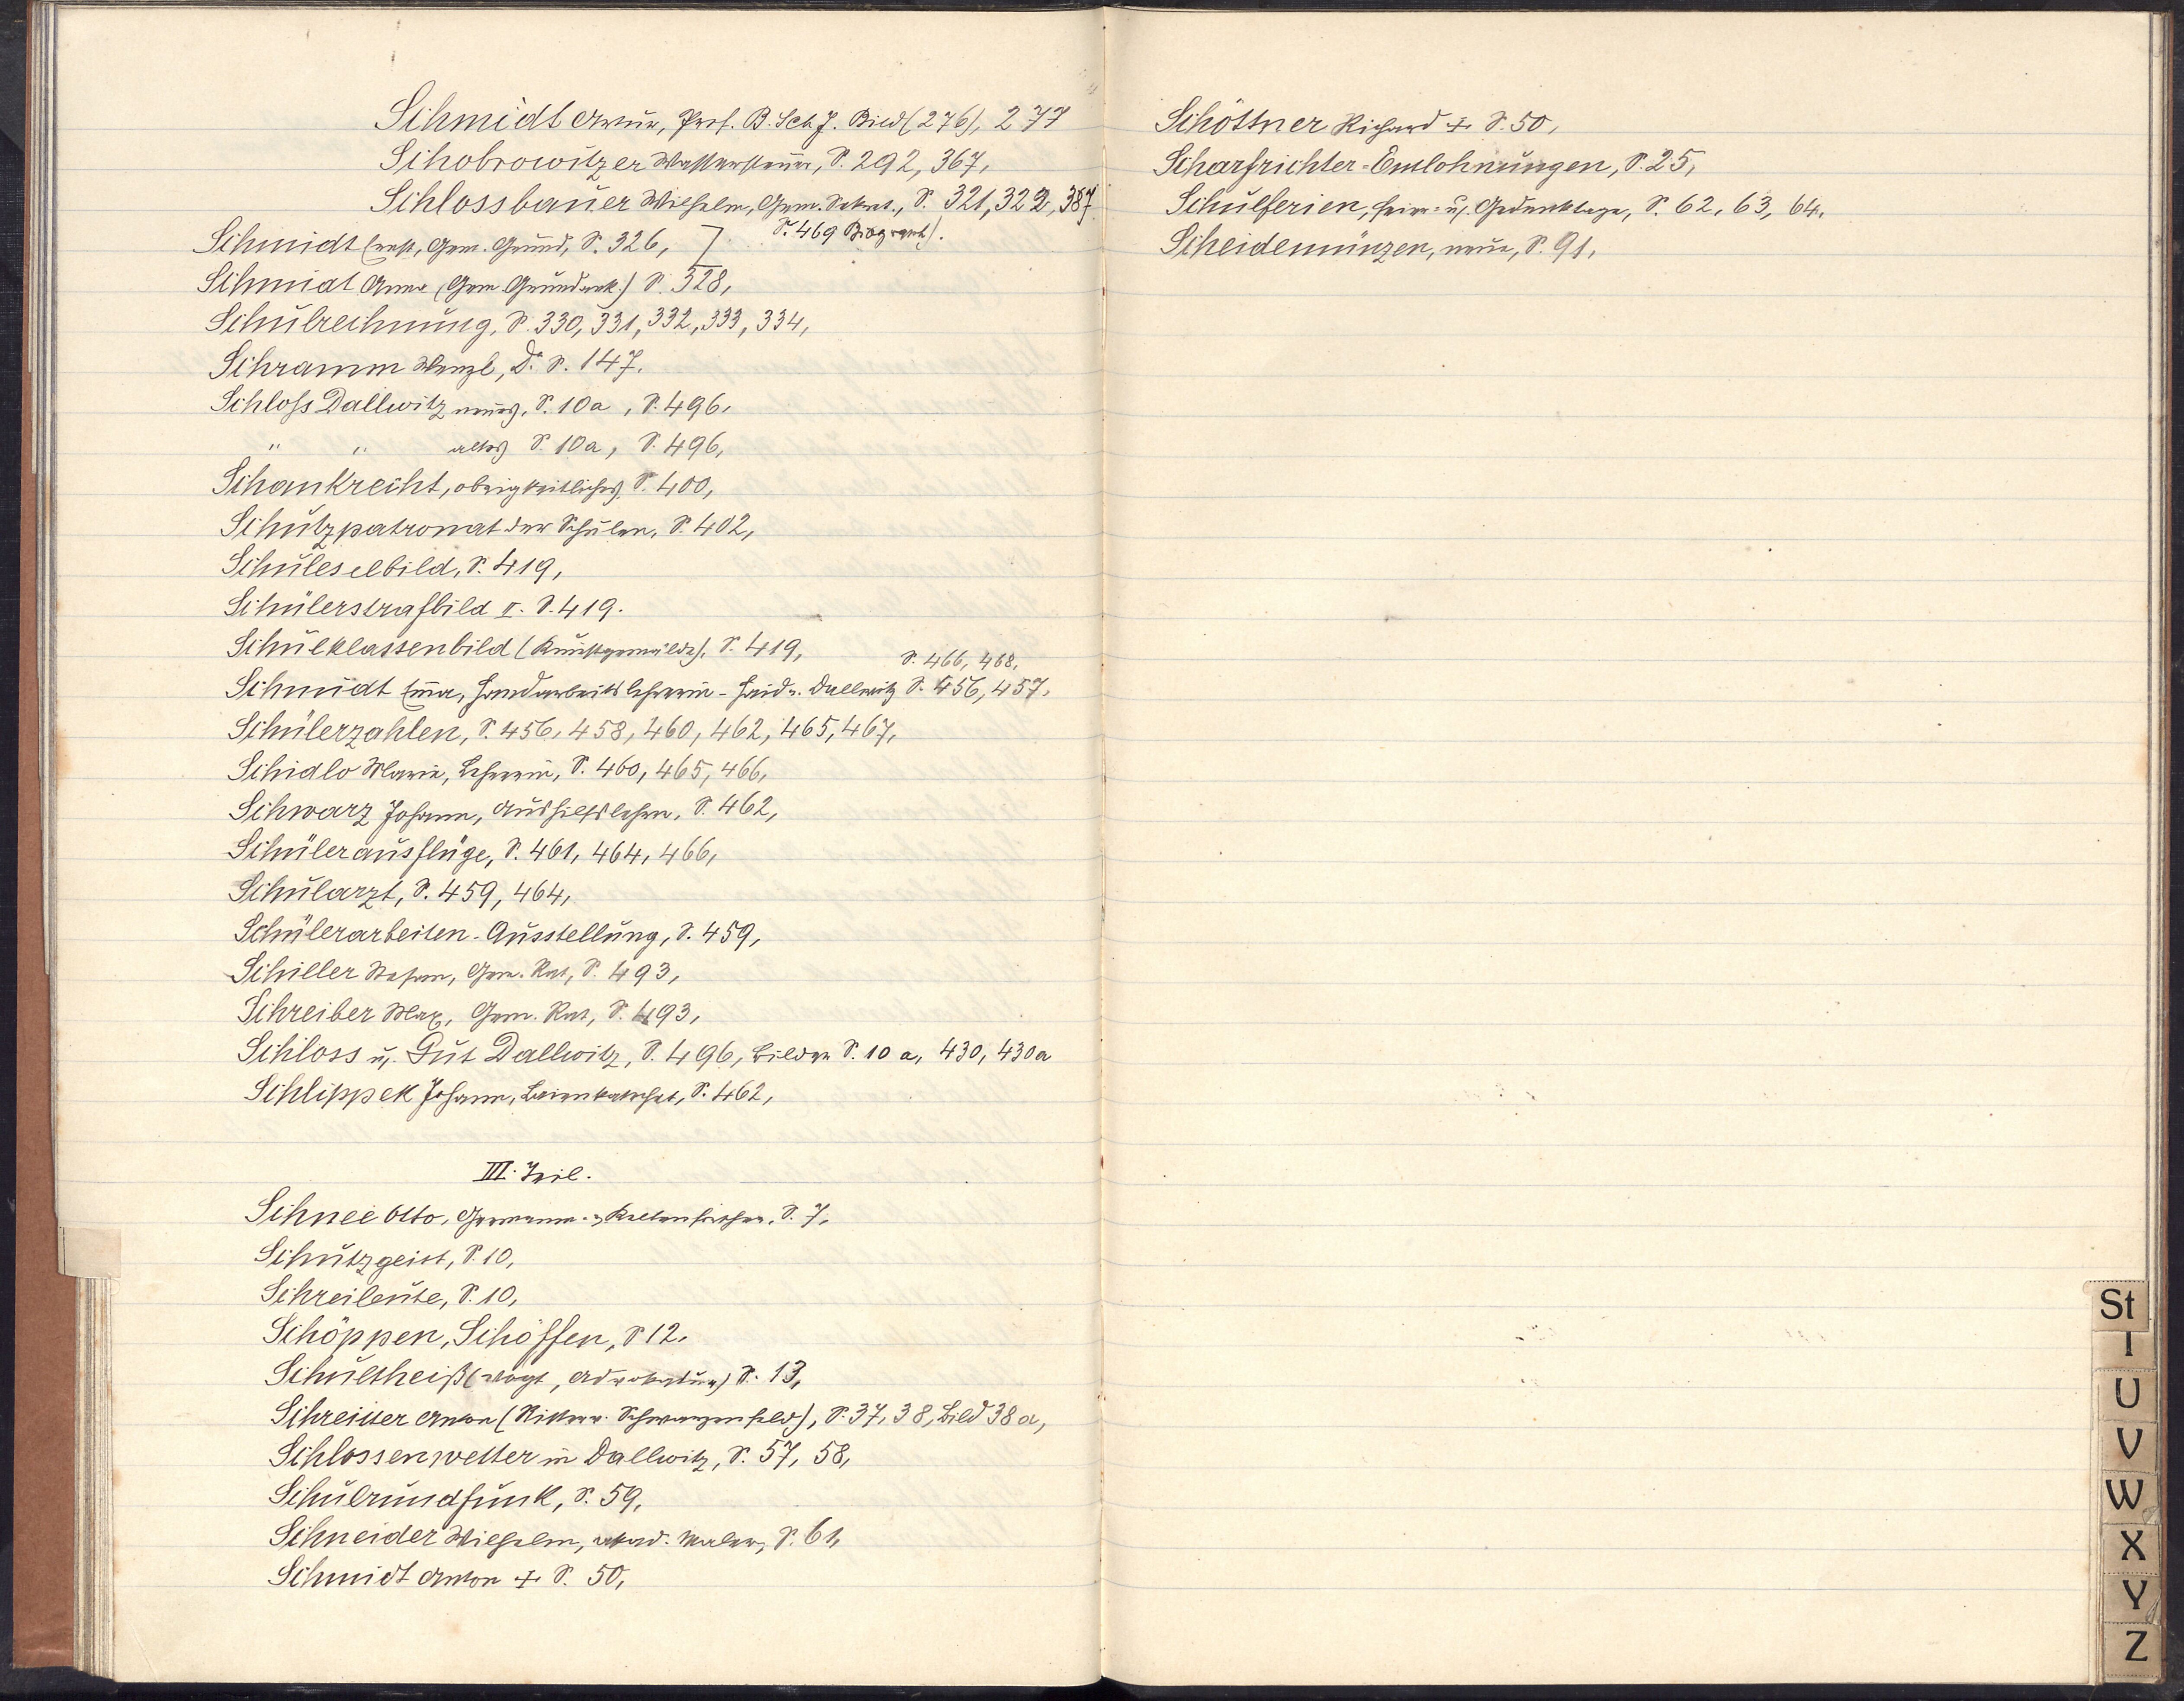 Schmidt Artur, Prof. B. Sch. J. Bild (276), 277
Schobrowitzer Wasserstauer, S. 292, 367,
Schlossbauer Wilhelm, Gem. Sekret., S. 321, 322, 387
S. 469 Biograph).
Schmidt Ernst, Gem. Grund, S. 326,
Schmidt Anna (Gem. Grundverk.) S. 328,
Schulrechnung, S. 330, 331, 332, 333, 334,
Schramm Wenzl, Dr. S. 147.
Schloss Dallwitz neues, S. 10a, S. 496,
" " altes S. 10a, S. 496,
Schankrecht, obrigkeitliches, S. 400,
Schutzpatronat der Schulen, S. 402,
Schuleselbild, S. 419,
Schülerstrafbild II. S. 419.
Schulklassenbild (Kunstgemälde), S. 419,
S. 466, 468,
Schmidt Emma, Handarbeitslehrerin - Haid u. Dallwitz S. 456, 457,
Schülerzahlen, S. 456, 458, 460, 462, 465, 467,
Schidlo Marie, Lehrerin, S. 460, 465, 466,
Schwarz Johann, Aushilfslehrer, S. 462,
Schülerausflüge, S. 461, 464, 466,
Schularzt, S. 459, 464,
Schülerarbeiten-Ausstellung, S. 459,
Schiller Stefan, Gem. Rat, S. 493,
Schreiber Max, Gem. Rat, S. 493,
Schloss u. Gut Dallwitz, S. 496, Bilder S. 10a, 430, 430a
Schlippek Johann, Laienkatechet, S. 462,
III. Teil.
Schnee Otto, Germanen- u. Keltenforscher, S. 7,
Schutzgeist, S. 10,
Schreileute, S. 10,
Schöppen, Schöffen, S. 12.
Schultheiß (Vogt, Advokatur) S. 13,
Schreiter Anton (Ritter v. Schwarzenfeld), S. 37, 38, Bild 38a,
Schlossenwetter in Dallwitz, S. 57, 58,
Schulrundfunk, S. 59,
Schneider Wilhelm, akad. Maler, S. 61,
Schmidt Anton † S. 50,
Schöttner Richard † S. 50,
Scharfrichter-Entlohnungen, S. 25,
Schulferien, Feier- u. Gedenktage, S. 62, 63, 64.
Scheidemünzen, neue, S. 91,
St
T
U
V
W
X
Y
Z